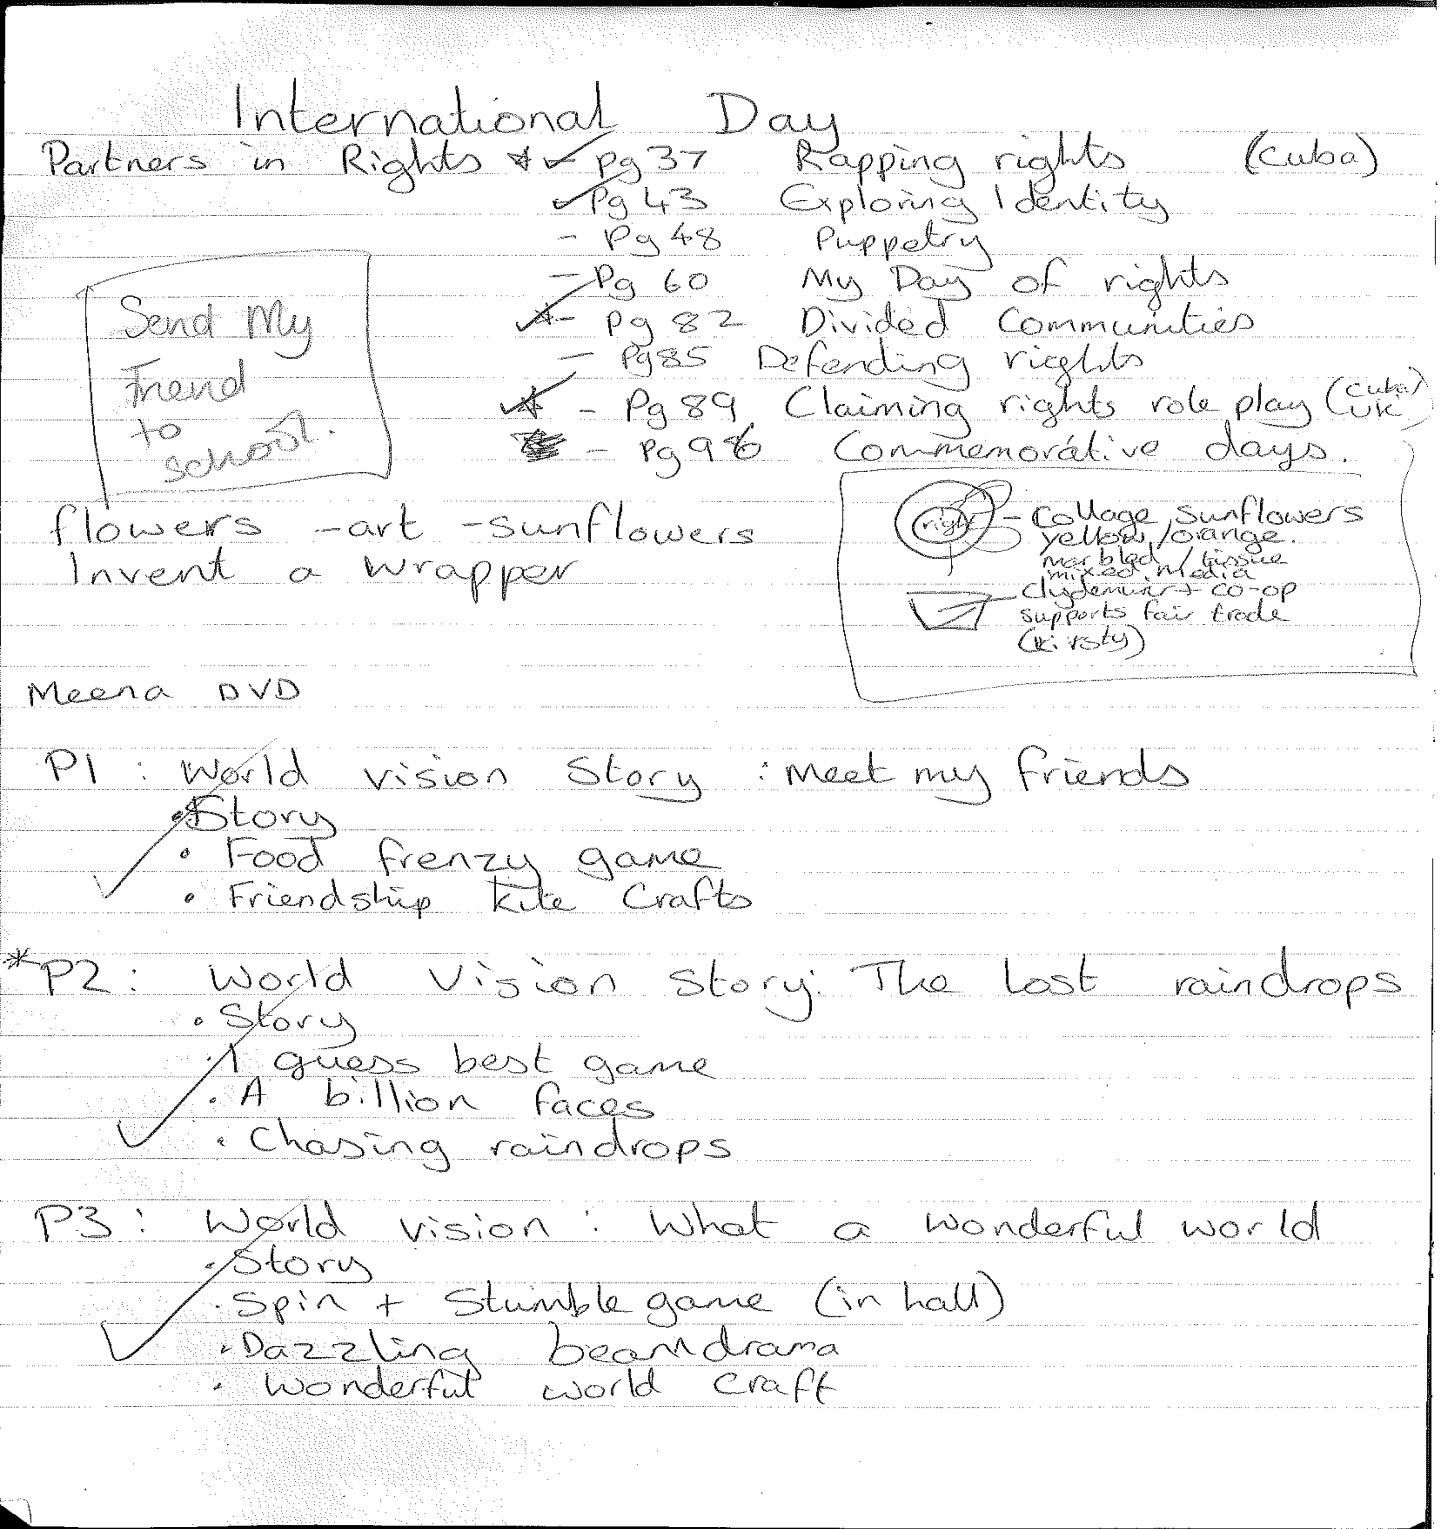 International Day
Partners in Rights * ✓ - pg 37 Rapping rights (Cuba)
✓ Pg 43 Exploring Identity
- Pg 48 Puppetry
- Pg 60 My Day of rights
✓ * - pg 82 Divided Communities
- Pg 85 Defending rights
✓ * - Pg 89 Claiming rights role play (Cuba/UK)
- Pg 96 Commemorative days.
Send My
Friend
to
school.
flowers - art - sunflowers
Invent a wrapper
right
- Collage sunflowers
yellow/orange.
marbled/tissue
mixed media
co-op
supports fair trade
(Kirsty)
Meena DVD
P1 : World vision Story : Meet my friends
• Story
• Food frenzy game
• Friendship Kite Crafts
*P2 : World Vision story: The lost raindrops
• Story
• I guess best game
• A billion faces
• Chasing raindrops
P3 : World vision : What a wonderful world
• Story
• Spin + Stumble game (in hall)
• Dazzling beam drama
• Wonderful world craft